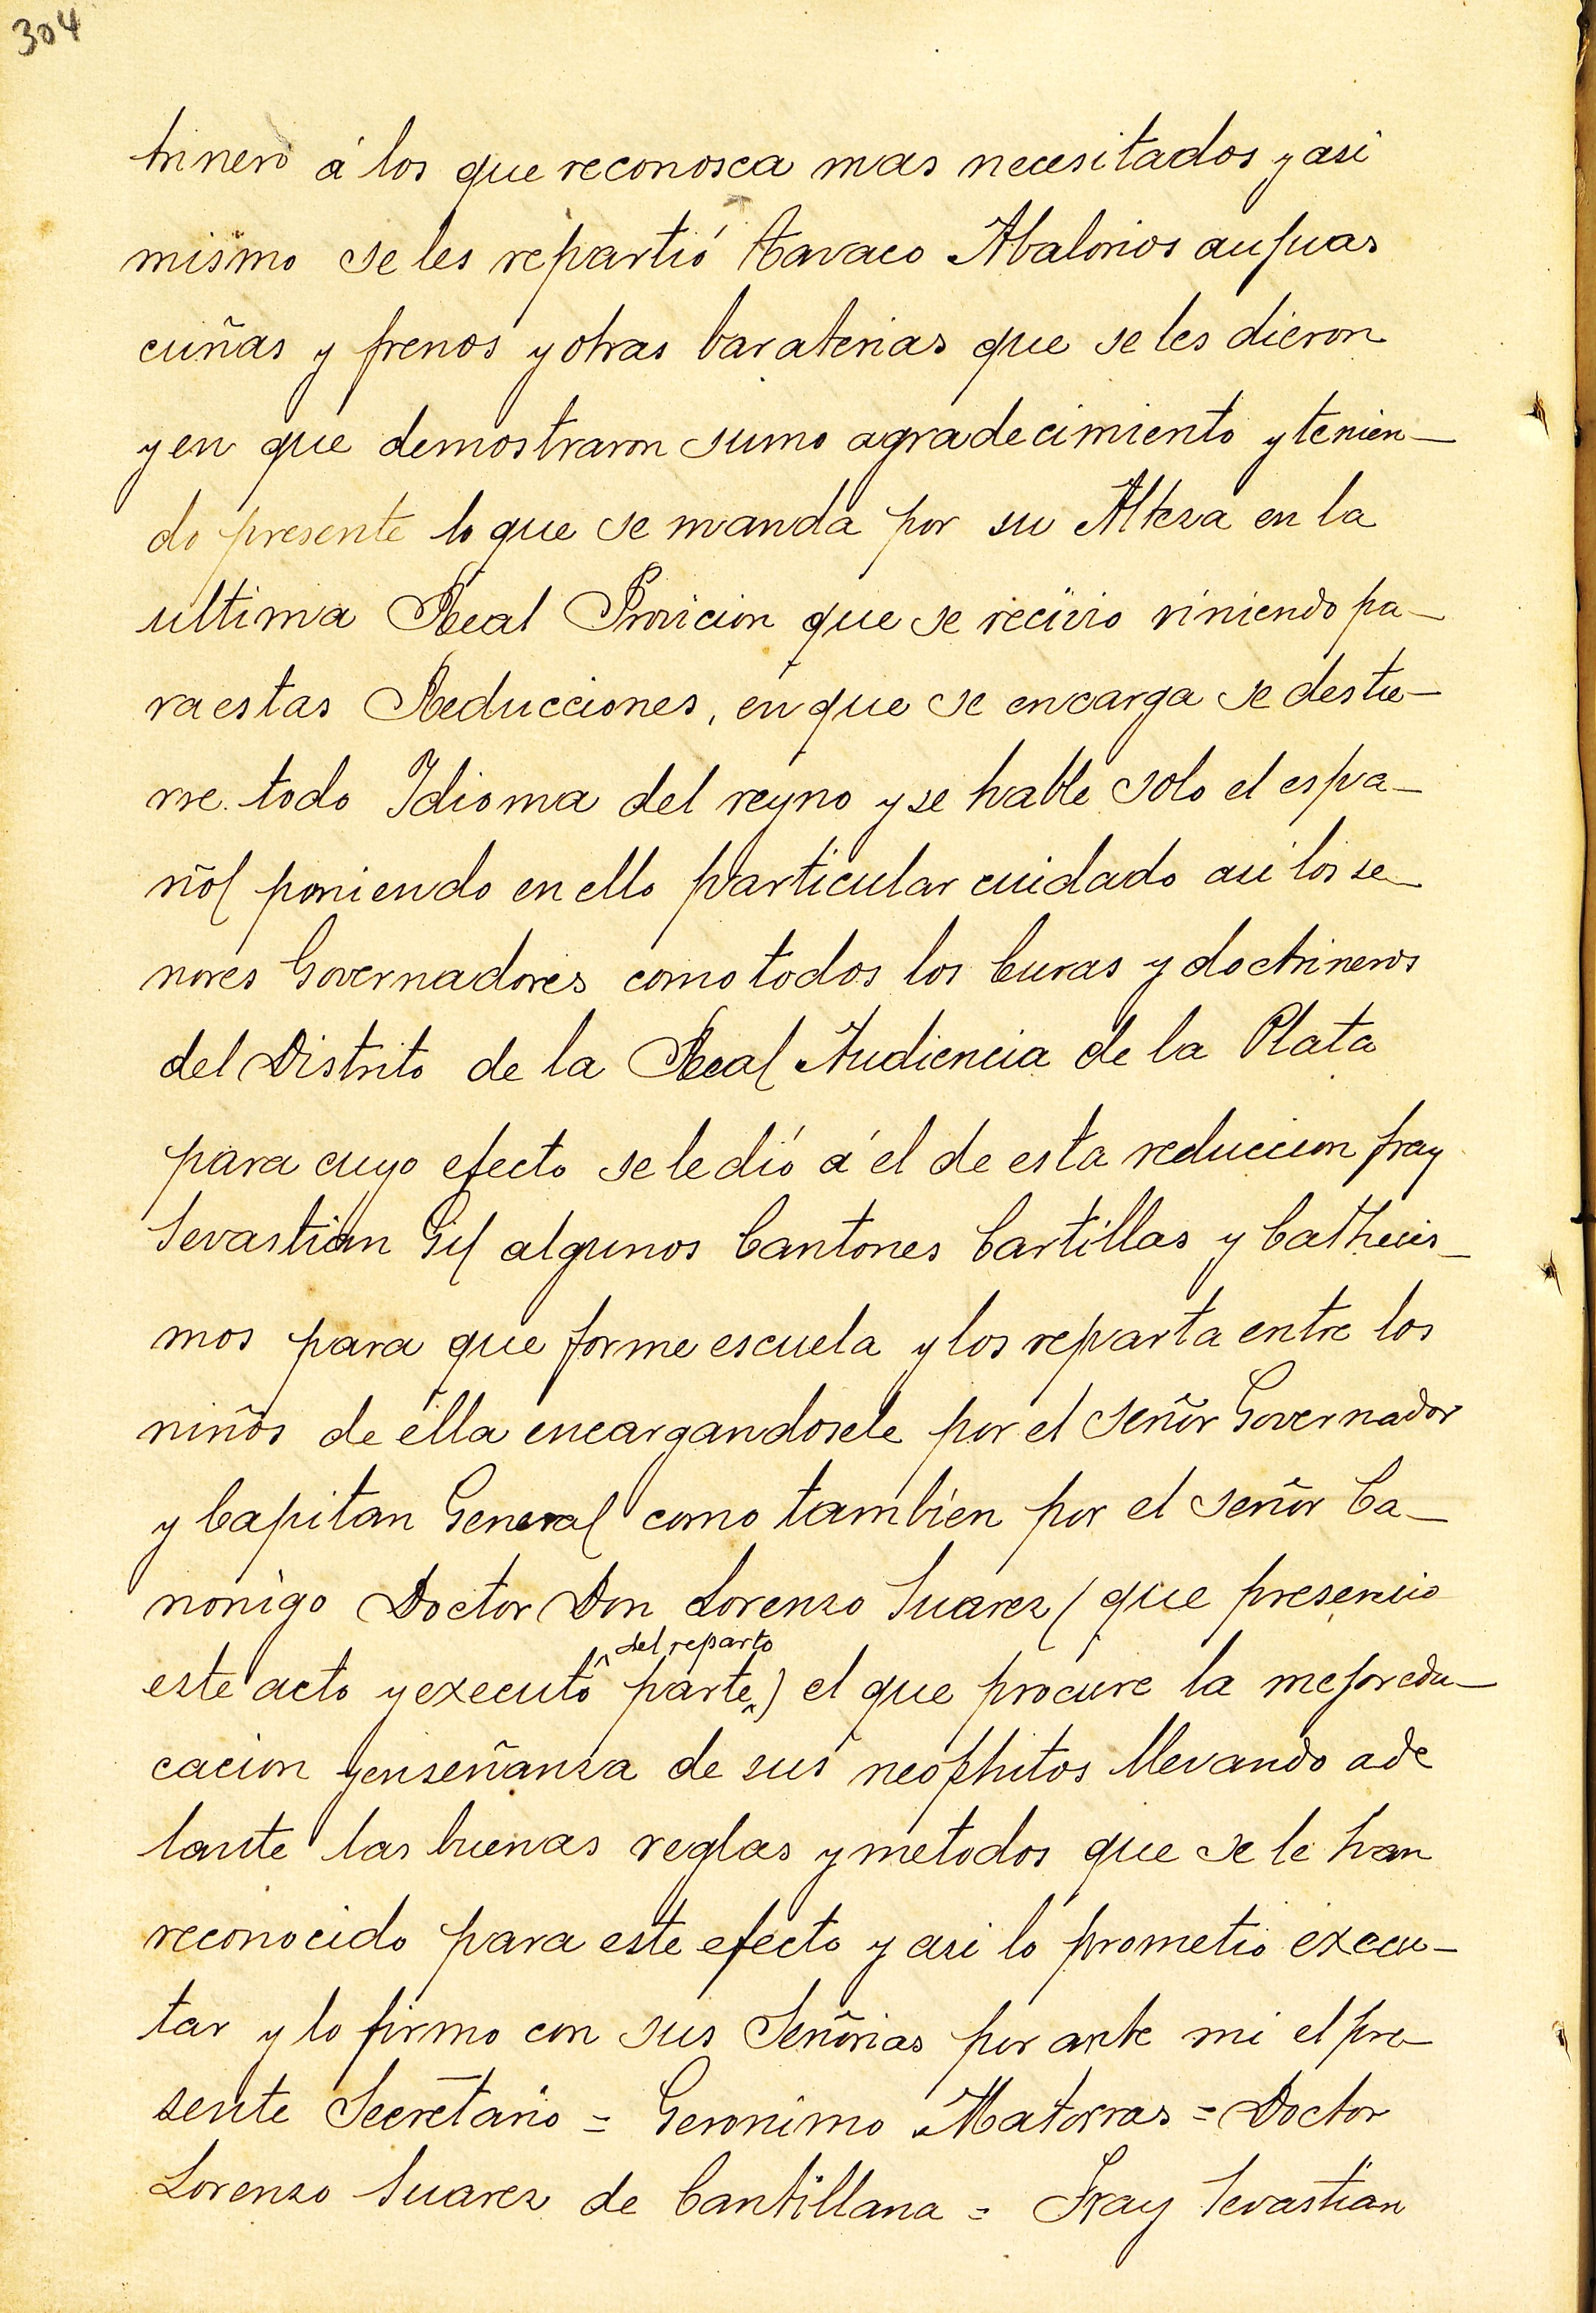 304
trinero á los que reconosca mas necesitados y asi
mismo se les repartió tavaco Abalorios aujuas
cuñas y frenos y otras baraterias que se les dieron
y en que demostraron sumo agradecimiento y tenien-
do presente lo que se manda por su Alteza en la
ultima Real Provicion que se recivio viniendo pa-
ra estas Reducciones, en que se encarga se destie-
rre todo Idioma del reyno y se hable solo el espa-
ñol poniendo en ello particular cuidado asi los se-
nores Governadores como todos los Curas y doctrineros
del Distrito de la Real Audiencia de la Plata
para cuyo efecto se le dió á el de esta reduccion fray
Sevastian Gil algunos Cantones Cartillas y Cathecis-
mos para que forme escuela y los reparta entre los
niños de ella encargandosele por el señor Governador
y Capitan General como tambien por el señor Ca-
nonigo Doctor Don Lorenzo Suarez (que presencio
del reparto
este acto y executó parte) el que procure la mejor edu-
cacion y enseñanza de sus neophitos llevando ade
lante las buenas reglas y metodos que se le han
reconocido para este efecto y asi lo prometio execu-
tar y lo firmo con sus Señorias por ante mi el pre-
sente Secretario = Geronimo Matorras = Doctor
Lorenzo Suarez de Cantillana = Fray Sevastian